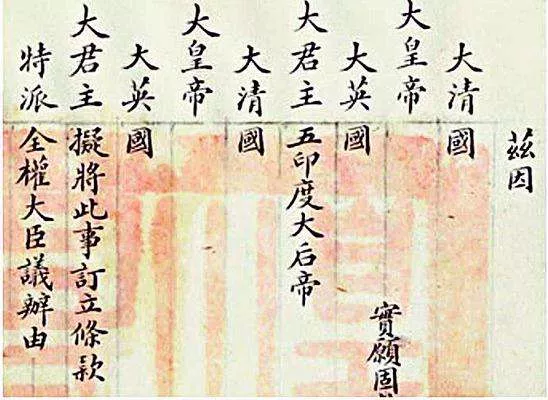 茲因
大清國
大皇帝
實願固
大英國
大君主五印度大后帝
大清國
大皇帝
大英國
大君主擬將此事訂立條款
特派全權大臣議辦由